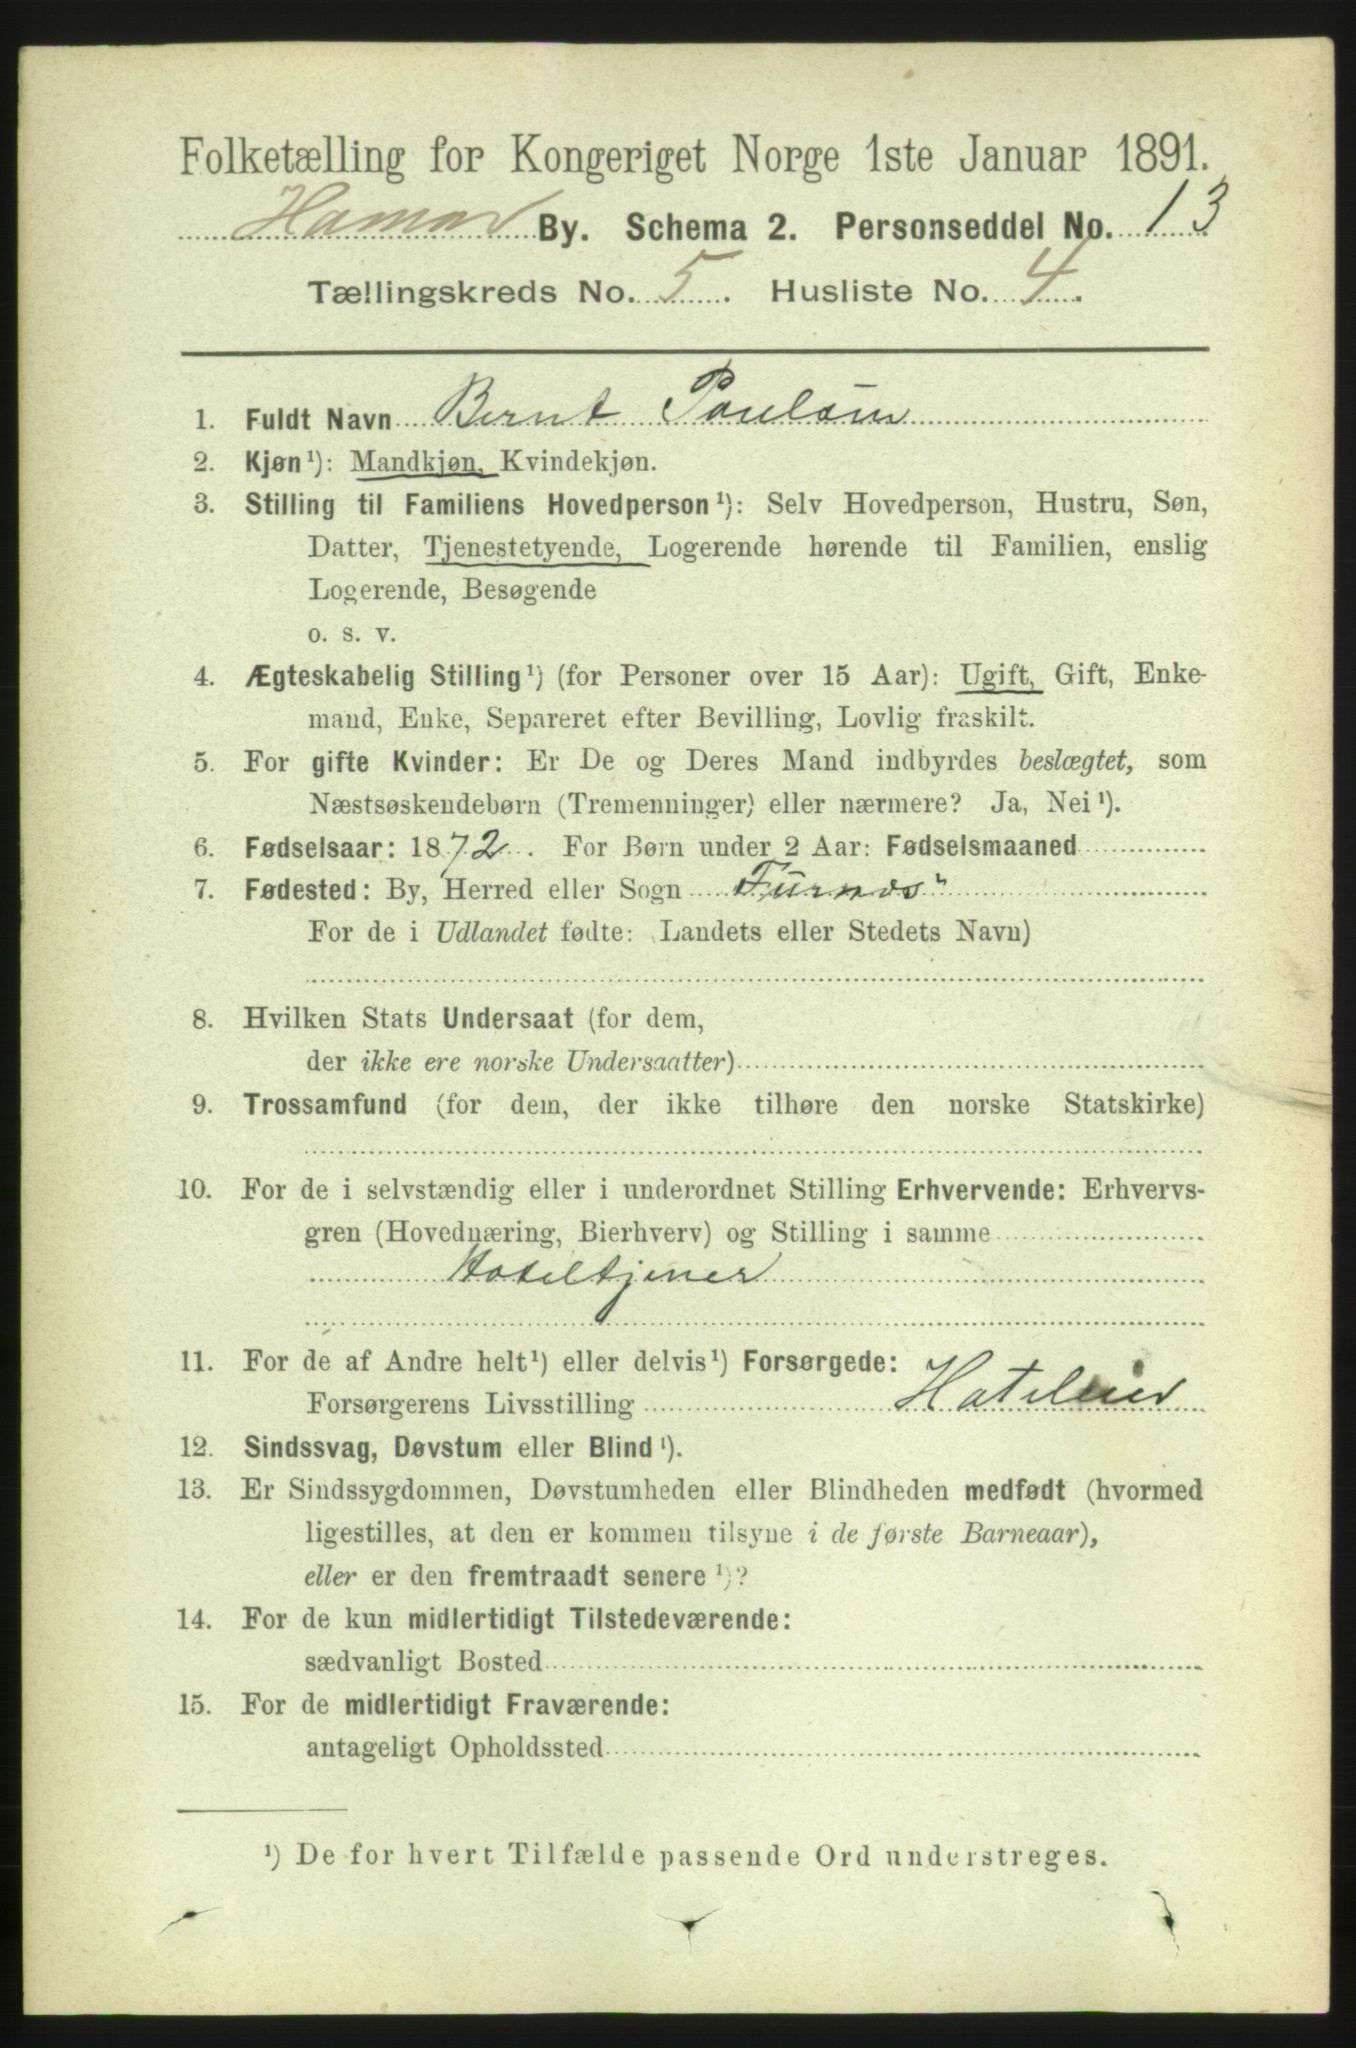 Folketælling for Kongeriget Norge 1ste Januar 1891.
Hamar By. Schema 2. Personseddel No. 13
Tællingskreds No. 5. Husliste No. 4.
1. Fuldt Navn Bernt Poulsen
2. Kjøn¹): Mandkjøn, Kvindekjøn.
3. Stilling til Familiens Hovedperson¹): Selv Hovedperson, Hustru, Søn,
Datter, Tjenestetyende, Logerende hørende til Familien, enslig
Logerende, Besøgende
o. s. v.
4. Ægteskabelig Stilling¹) (for Personer over 15 Aar): Ugift, Gift, Enke-
mand, Enke, Separeret efter Bevilling, Lovlig fraskilt.
5. For gifte Kvinder: Er De og Deres Mand indbyrdes beslægtet, som
Næstsøskendebørn (Tremenninger) eller nærmere? Ja, Nei¹).
6. Fødselsaar: 1872. For Børn under 2 Aar: Fødselsmaaned
7. Fødested: By, Herred eller Sogn Furnæs
For de i Udlandet fødte: Landets eller Stedets Navn)
8. Hvilken Stats Undersaat (for dem,
der ikke ere norske Undersaatter)
9. Trossamfund (for dem, der ikke tilhøre den norske Statskirke)
10. For de i selvstændig eller i underordnet Stilling Erhvervende: Erhvervs-
gren (Hovednæring, Bierhverv) og Stilling i samme
Hoteltjener
11. For de af Andre helt¹) eller delvis¹) Forsørgede:
Forsørgerens Livsstilling Hoteleier
12. Sindssvag, Døvstum eller Blind¹).
13. Er Sindssygdommen, Døvstumheden eller Blindheden medfødt (hvormed
ligestilles, at den er kommen tilsyne i de første Barneaar),
eller er den fremtraadt senere¹)?
14. For de kun midlertidigt Tilstedeværende:
sædvanligt Bosted
15. For de midlertidigt Fraværende:
antageligt Opholdssted
¹) De for hvert Tilfælde passende Ord understreges.